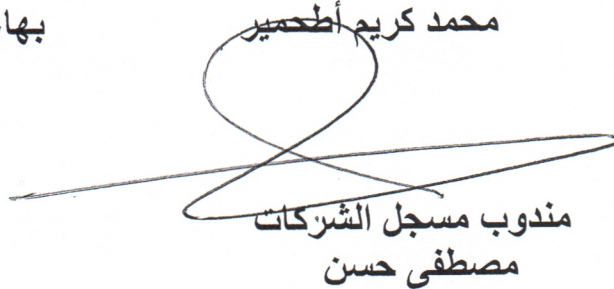 محمد كريم أطحمير
مندوب مسجل الشركات
مصطفى حسن